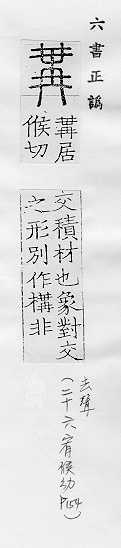 六書正譌
冓居
候切
交積材也象對交
之形別作構非
去聲
(二十六宥候幼 P154)